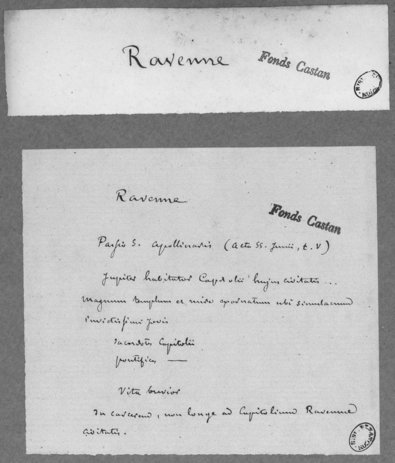 Ravenne
Fonds Castan
Ravenne
Fonds Castan
Passio S. Apollinaris (Acta SS. Junii, t. V)
Jupiter habitator Capitolii hujus civitatis ...
Magnum templum et miro ornatum ubi simulacrum
invictissimi Jovis
Sacerdotes Capitolii
pontifices —
Vita brevior
In carcerem, non longe ad Capitolium Ravennae
civitatis.